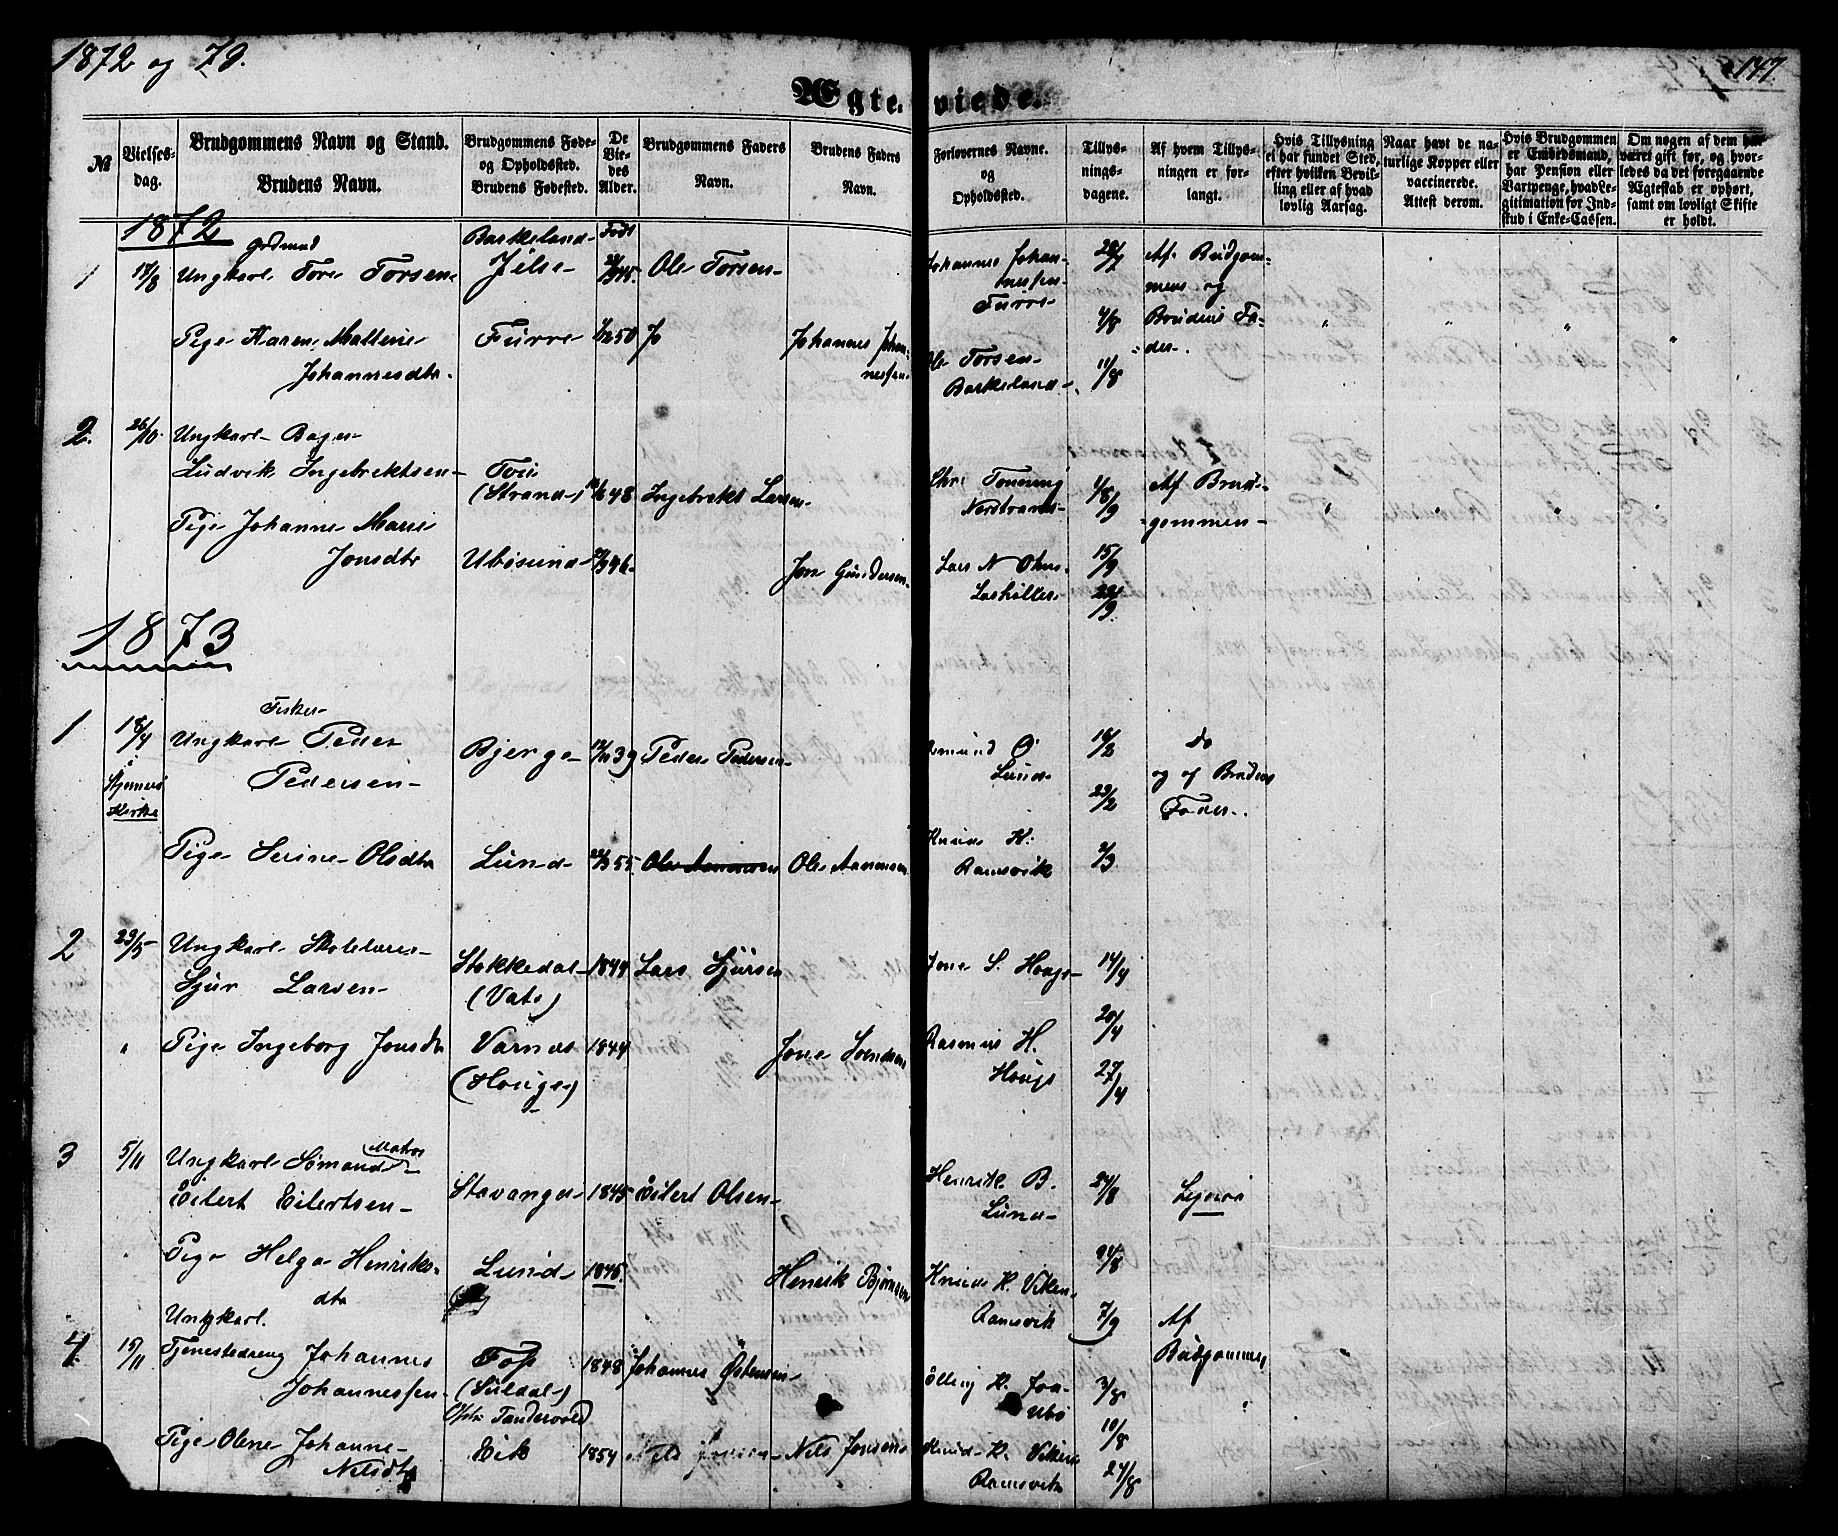 1872 og 73.
147.
Ægteviede.
№
Vielses-
dag.
Brudgommens Navn og Stand.
Brudens Navn.
Brudgommens Føde-
og Opholdssted.
Brudens Fødested.
De
Vie-
des
Alder.
Brudgommens Faders
Navn.
Brudens Faders
Navn.
Forlovernes Navne.
og
Opholdssted.
Tillys-
nings-
dagene.
Af hvem Tillys-
ningen er for-
langt.
Hvis Tillysning
ei har fundet Sted,
efter hvilken Bevil-
ling eller af hvad
lovlig Aarsag.
Naar havt de na-
turlige Kopper eller
vaccinerede.
Attest derom.
Hvis Brudgommen
er Embedsmand,
har Pension eller
Vartpenge, hvad Le-
gitimation for Ind-
skud i Enke-Cassen.
Om nogen af dem har
været gift før, og hvor-
ledes da det foregaaende
Ægteskab er ophørt,
samt om lovligt Skifte
er holdt.
1872
1 17/8 Ungkarl Tore Torsen Barkeland Jelse Født 45. Ole Torsen
Johannes Johan-
nessen
Furre
28/7
4/8
11/8
Af Brudgom-
mens og
Brudens Fa-
der.
Pige Karen Mallene
Johannesdtr. Furre 50 Johannes Johan-
nessen
Ole Torsen
Barkeland
2. 26/10. Ungkarl Bager
Ludvik Ingebrektsen
(Strand) 48 Ingebrekt Larsen
8/9
Af Brud-
gommen
Pige Johanne Marie
Jonsdtr Ubøsund 46 Jon Gundersen
Lars N
15/9
22/9.
1873
1 18/4
i
Kirke
Fisker
Ungkarl Peder
Pedersen Bjerge 39 Peder Pedersen
Amund O
Lund
16/2
23/2
2/3
Do
og af Brudens
Fader.
Pige Serine Olsdtr Lund 55. Ole Aanensen
Knud K.
Ramsvik
2 23/5 Ungkarl Skolelærer
Sjur Larsen Stokkedal
(Vats) 1844 Lars Sjursen
Jone S. Houge
14/4
20/4
27/4
Pige Ingeborg Jonsdtr Varnes
(Houge) 1844 Jone Svendsen
Rasmus H.
Houge
3 5/11 Ungkarl Sømand Matros
Eilert Eilertsen Stavanger 1845 Eilert Olsen
Henrik B.
Lund
24/8
Pige Helga Henriks-
dtr Lund 1845. Henrik Bjørnsen
Knud K. Viken
Ramsvik
7/9
Af
Brudgommen
Ungkarl.
4. 15/11 Tjenestedreng Johannes
Johannessen
(Suldal)
1848 Johannes Østensen
3/8
10/8
24/8
Pige Olene Johanne
Nilsdtr Eik 1854 Nils Jonsen
Knud K. Viken
Ramsvik